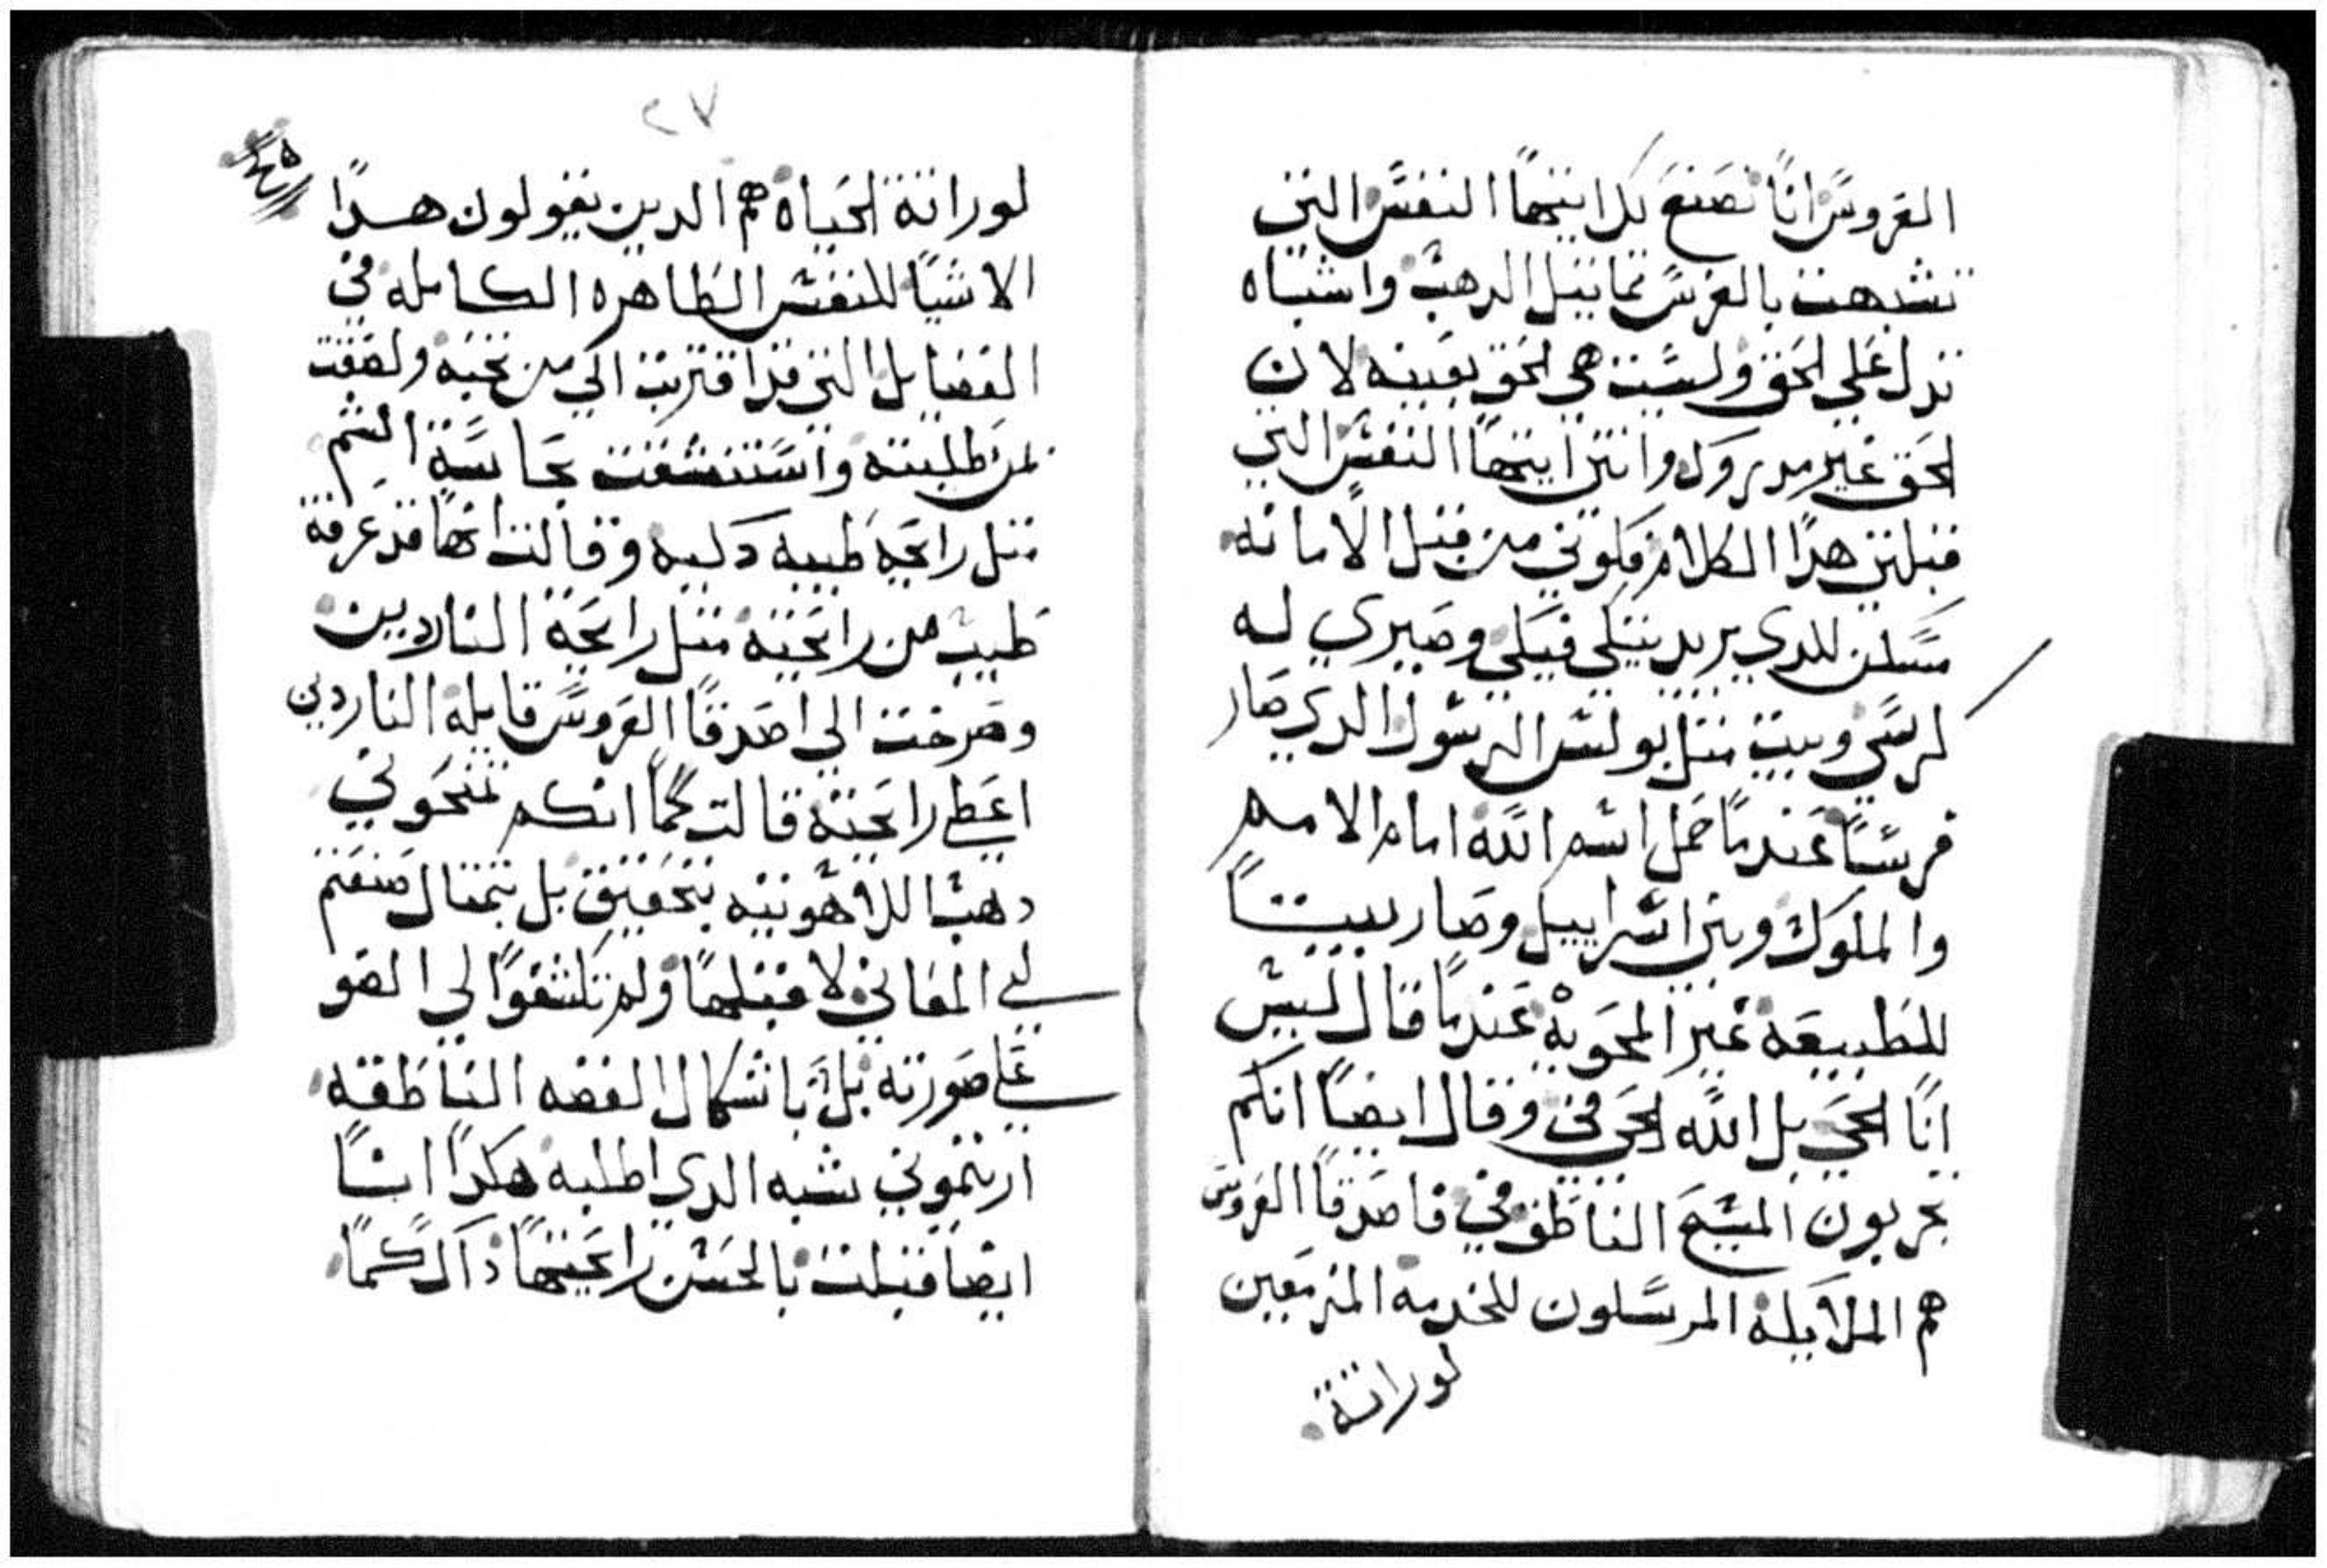 العروس انا نصنع لك ايتها النفس التي
تشبهت بالفرس تماتيل الدهب واشباه
تدل علي الحق وليست هي الحق بعينه لان
الحق غير مدروك وانتي ايتها النفس التي
قبلتي هدا الكلام فكوني من قبل الامانه
مسكن للدي يريد يتكي فيكي وصيري له
كرسي وبيت متل بولس الرسول الدي صار
فرسا عندما حمل اسم الله امام الامم
والملوك وبني اسراييل وصار بيتا
للطبيعه غير المحويه عندما قال ليس
انا الحي بل الله الحي في وقال ايضا انكم
تجربون المسيح الناطق في فاصدقا العروس
هم الملايكة المرسلون للخدمه المزمعين
لوراتة
٢٧
لوراتة الحياه هم الدين يقولون هدا
الاشيا للنفس الطاهره الكامله في
الفضايل التي قد اقتربت الي من تحبه ولصقت
لمن طلبته واستنشقت بحاسة الشم
متل رايحه طيبه دكيه وقالت انها قد عرفة
طيب من رايحته متل رايحة الناردين
وصرخت الي اصدقا العروس قايلة الناردين
اعطي رايحته قالت كما انكم تمنحوني
دهب اللاهوتيه بتحقيق بل بتمتال صنعتم
لي المعاني لا قبلها ولم تكشفوا لي الضو
علي صورته بل باشكال الفضه الناطقه
اريتموني شبه الدي اطلبه هكدا انا
ايضا قبلت بالحس رايحتها داك كما